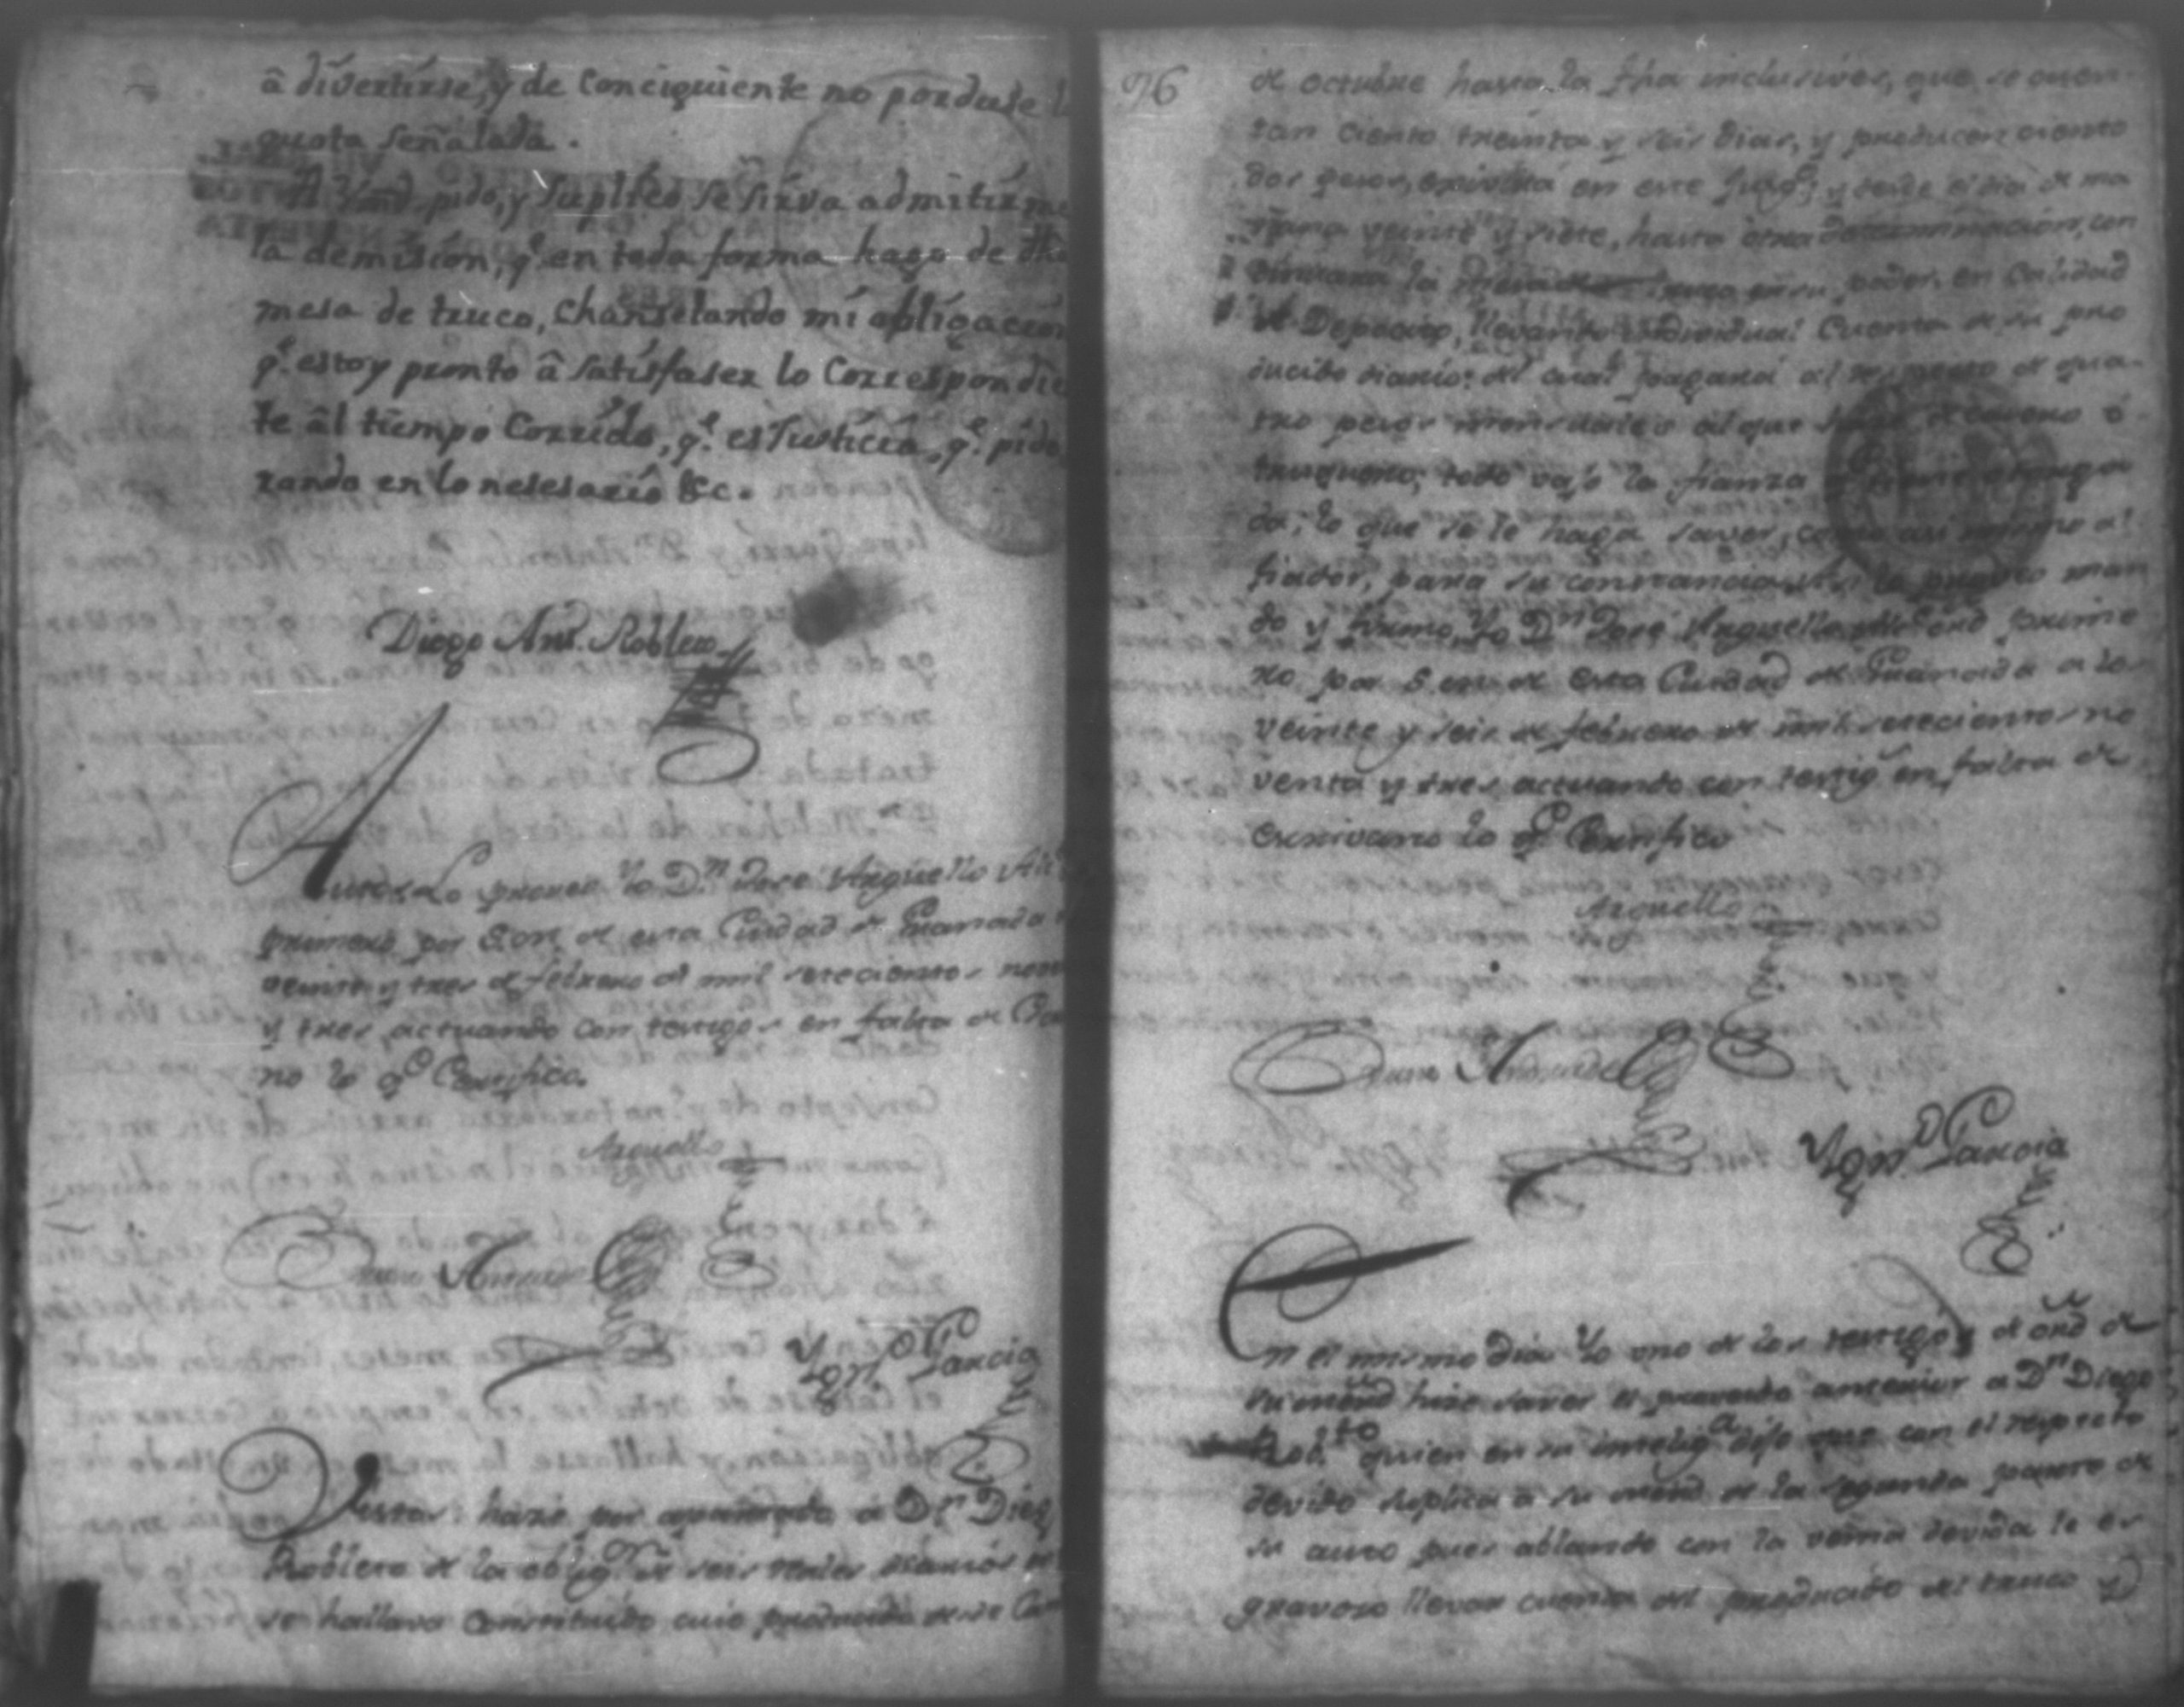 â divertirse, y de conciguiente no porduse l
quota señalada.
A Vmd. pido, y Suplico se sirva admitirme
la demisión, q.e en toda forma hago de dha
mesa de truco, Chanselando mi obligación
q.e estoy pronto â satisfaser lo Correspondien
te âl tiempo Corrido, q.e es Justicia, q.e pido
rando en lo nesesario &c.
Diego Ant.o Roblero
Autos Lo proveo Yo D.n Jose Arguello Alc
primero por S.M. de esta Ciudad de Granada
veinte y tres de febrero de mil setecientos nov
y tres actuando con testigos en falta de
no lo q.e Certifico.
Arguello
Bruno Andrade
Ygn.o Garcia
Vistos: hase por apartado a D.n Dieg
Roblero de la oblig.on de seis reales diarios
se hallava constituido cuio producido desde
96
de octubre hasta la fha inclusives, que se cuen
tan ciento treinta y seis dias, y producen ciento
dos pesos, exivirá en este Juzg.o; y desde el dia de ma
ñana veinte y siete, hasta otra determinación, con
tinuara la en su poder, en Calidad
de Deposito, llevando individual Cuenta de su pro
ducido diario: del cual pagará al respecto de qua
tro pesos mensuales al que
truquero; todo vajo la fianza
da; lo que se le haga saver, como asi mismo al
fiador, para su constancia. Asi lo proveo man
do y firmo, Yo D.n Jose Arguello Alc.e ord.o prime
ro por S.M. de esta Ciudad de Granada a los
veinte y seis de febrero de mil setecientos no
venta y tres actuando con testig.s en falta de
escrivano lo q.e Certifico
Arguello
Bruno Andrade
Ygn.o Garcia
En el mismo dia Yo uno de los testigos de orn de
su merd hize saver el proveido anterior a D.n Diego
Rob.ro quien en su intelig.a dijo que con el respecto
devido suplica a su merd. de la segunda parte de
su auto pues ablando con la venia devida le es
gravoso llevar cuenta del producido del truco y